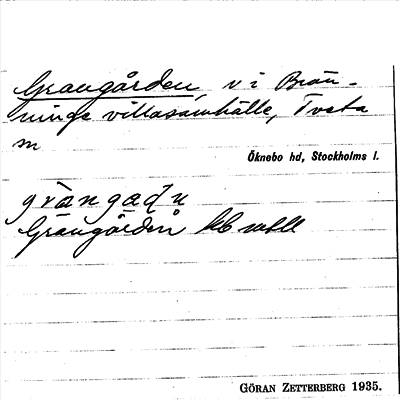 Grangården, v i Brän-
ninge villasamhälle, Tveta
sn
Öknebo hd, Stockholms l.
gràngadn
Grangården
GÖRAN ZETTERBERG 1935.